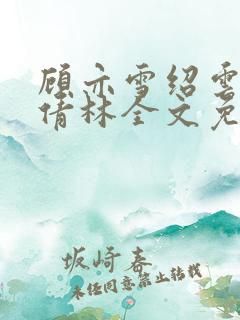 顾亦雪绍雲
倩林全文免
坂崎春
未经同意禁止转载